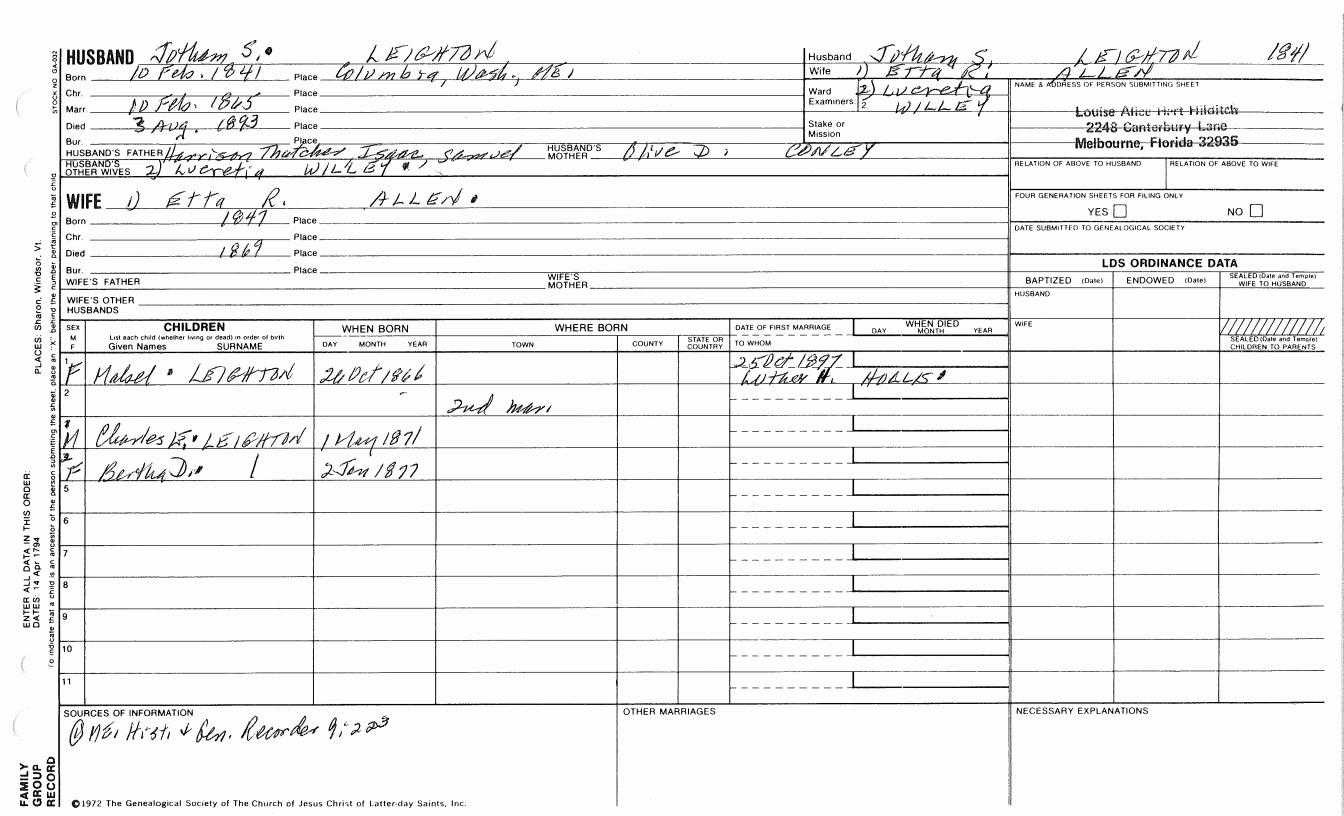 HUSBAND Jotham S. LEIGHTON
Born 10 Feb. 1841 Place Columbia, Wash., ME.
Chr. Place
Marr 10 Feb. 1865 Place
Died 3 Aug. 1893 Place
Bur. Place
HUSBAND'S FATHER Harrison Thatcher Isaac, Samuel HUSBAND'S MOTHER Olive D. CONLEY
HUSBAND'S OTHER WIVES 2) Lucretia WILLEY
WIFE 1) Etta R. ALLEN
Born 1847 Place
Chr. Place
Died 1869 Place
Bur. Place
WIFE'S FATHER WIFE'S MOTHER
WIFE'S OTHER HUSBANDS
Husband Jotham S. LEIGHTON 1841
Wife 1) Etta R. ALLEN
Ward 2) Lucretia
Examiners 1 2 WILLEY
Stake or Mission
NAME & ADDRESS OF PERSON SUBMITTING SHEET
Louise Alice Hart Hilditch
2248 Canterbury Lane
Melbourne, Florida 32935
RELATION OF ABOVE TO HUSBAND RELATION OF ABOVE TO WIFE
FOUR GENERATION SHEETS FOR FILING ONLY
YES NO
DATE SUBMITTED TO GENEALOGICAL SOCIETY
LDS ORDINANCE DATA
BAPTIZED (Date) ENDOWED (Date) SEALED (Date and Temple) WIFE TO HUSBAND
HUSBAND
WIFE
SEALED (Date and Temple) CHILDREN TO PARENTS
SEX M F CHILDREN List each child (whether living or dead) in order of birth Given Names SURNAME
WHEN BORN DAY MONTH YEAR
WHERE BORN TOWN COUNTY STATE OR COUNTRY
DATE OF FIRST MARRIAGE TO WHOM
WHEN DIED DAY MONTH YEAR
1 F Mabel LEIGHTON 26 Oct 1866 25 Oct 1897
Luther H. HOLLIS
2 2nd mar.
M Charles E. LEIGHTON 1 May 1871
F Bertha D. 2 Jan 1877
5
6
7
8
9
10
11
SOURCES OF INFORMATION
① ME. Hist. & Gen. Recorder 9:223
OTHER MARRIAGES
NECESSARY EXPLANATIONS
©1972 The Genealogical Society of The Church of Jesus Christ of Latter-day Saints, Inc.
STOCK NO. GA-032
To indicate that a child is an ancestor of the person submitting the sheet, place an "X" behind the number pertaining to that child.
PLACES: Sharon, Windsor, Vt.
ENTER ALL DATA IN THIS ORDER:
DATES: 14 Apr 1794
FAMILY GROUP RECORD